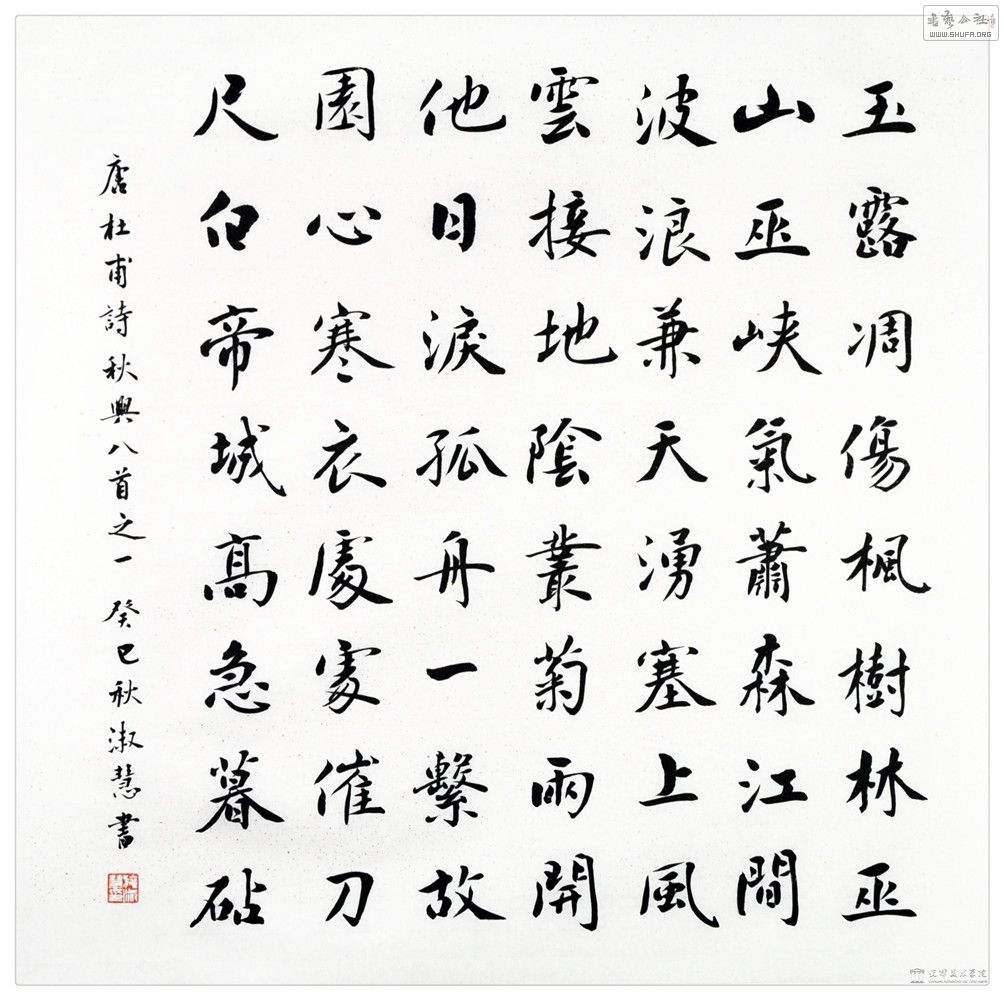 玉露凋傷楓樹林巫
山巫峽氣蕭森江間
波浪兼天湧塞上風
雲接地陰叢菊兩開
他日淚孤舟一繫故
園心寒衣處處催刀
尺白帝城高急暮砧
唐杜甫詩秋興八首之一 癸巳秋淑慧書
書藝公社
WWW.SHUFA.ORG